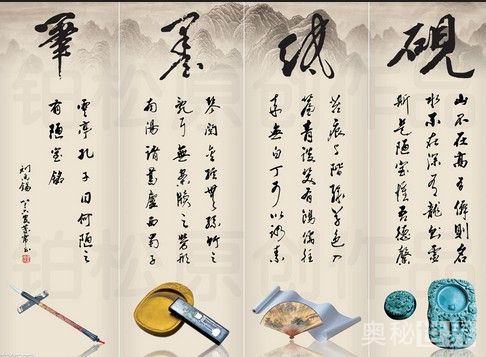 硯
山不在高有僊則名
水不在深有龍則靈
斯是陋室惟吾德馨
紙
苔痕上階綠草色入
簾青談笑有鴻儒往
來無白丁可以調素
墨
琴閱金經無絲竹之
亂耳無案牘之勞形
南陽諸葛廬西蜀子
筆
雲亭孔子曰何陋之
有陋室銘
劉禹錫
铂松原创作品
铂松原创作品